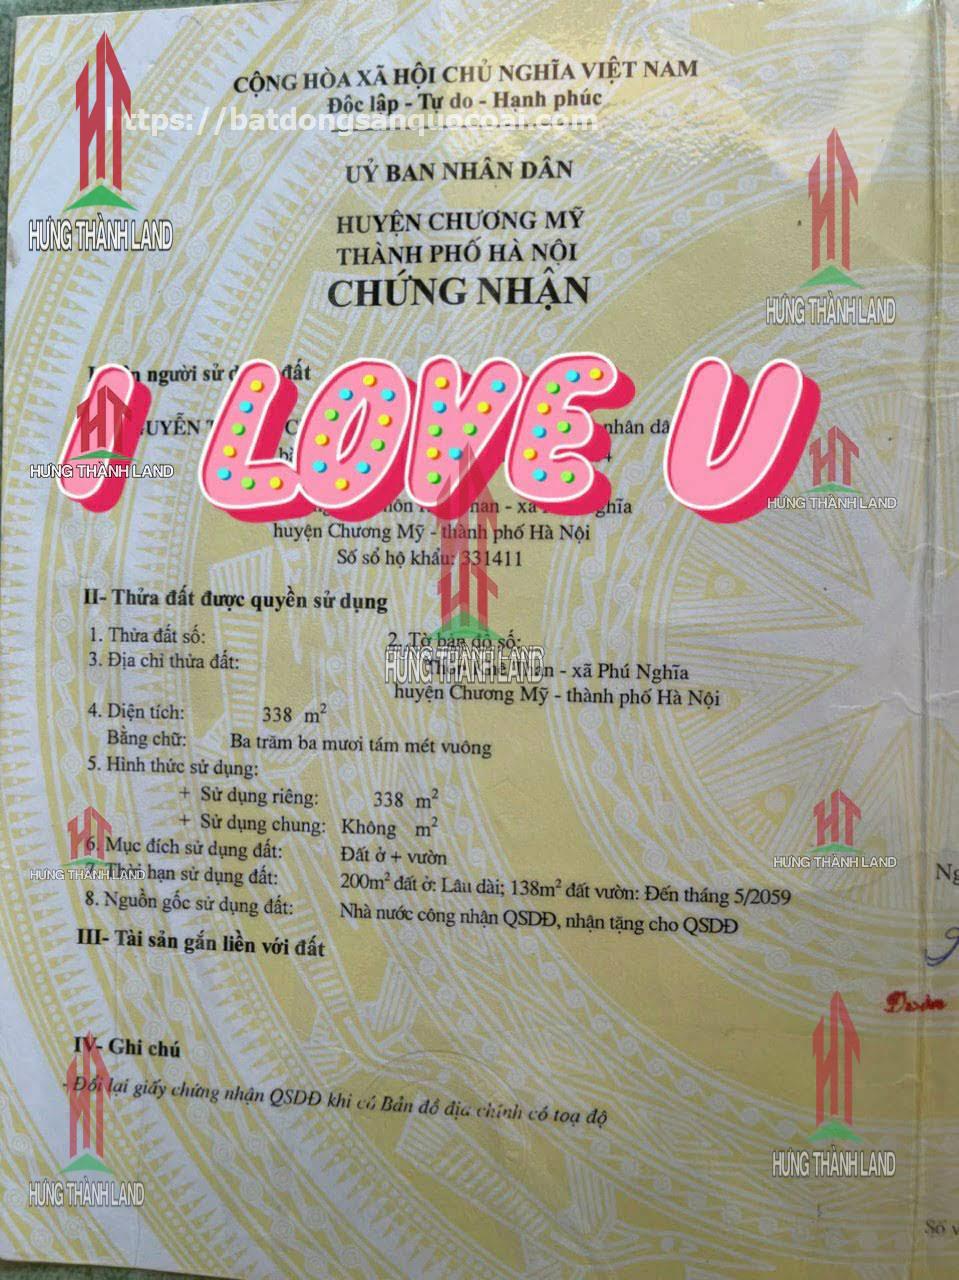 CỘNG HÒA XÃ HỘI CHỦ NGHĨA VIỆT NAM
Độc lập - Tự do - Hạnh phúc
https://batdongsanquocoai.com
HƯNG THÀNH LAND
UỶ BAN NHÂN DÂN
HUYỆN CHƯƠNG MỸ
THÀNH PHỐ HÀ NỘI
HƯNG THÀNH LAND
CHỨNG NHẬN
người sử đất
I LOVE U
nhân
HƯNG THÀNH LAND
HƯNG THÀNH LAND
- xã Nghĩa
huyện Chương Mỹ - thành phố Hà Nội
Số sổ hộ khẩu: 331411
II- Thửa đất được quyền sử dụng
1. Thửa đất số: 2. Tờ bản đồ số:
3. Địa chỉ thửa đất: - xã Phú Nghĩa
HƯNG THÀNH LAND
huyện Chương Mỹ - thành phố Hà Nội
4. Diện tích: 338 m²
Bằng chữ: Ba trăm ba mươi tám mét vuông
5. Hình thức sử dụng:
+ Sử dụng riêng: 338 m²
+ Sử dụng chung: Không m²
6. Mục đích sử dụng đất: Đất ở + vườn
HƯNG THÀNH LAND
HƯNG THÀNH LAND
7. Thời hạn sử dụng đất: 200m² đất ở: Lâu dài; 138m² đất vườn: Đến tháng 5/2059
8. Nguồn gốc sử dụng đất: Nhà nước công nhận QSDĐ, nhận tặng cho QSDĐ
III- Tài sản gắn liền với đất
IV- Ghi chú
- Đổi lại giấy chứng nhận QSDĐ khi có Bản đồ địa chính có toạ độ
HƯNG THÀNH LAND
HƯNG THÀNH LAND
Số